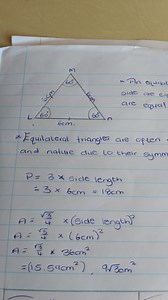 M
60°
6cm
6cm
L 60° 60° N
6cm
* An equi
side are e
are equal
* Equilateral triangles are often
and native due to their symm
P = 3 × side length
= 3 × 6cm = 18cm
A = √3/4 × (side length)²
A = √3/4 × (6cm)²
A = √3/4 × 36cm²
= (15.59cm²), 9√3cm²